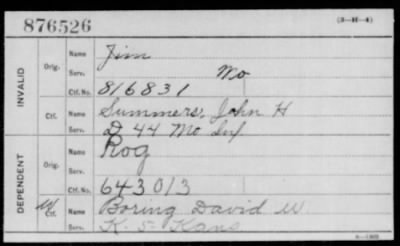 876526 (3-H-4)
INVALID
Orig. Name Jim
Serv. Mo
Ctf. No. 816831
Ctf. Name Summers, John H
Serv. D 44 Mo Inf
DEPENDENT
Orig. Name Rog
Serv.
Ctf. No. 643013
Ctf. Name Boring David W
Serv. K 5 Kans